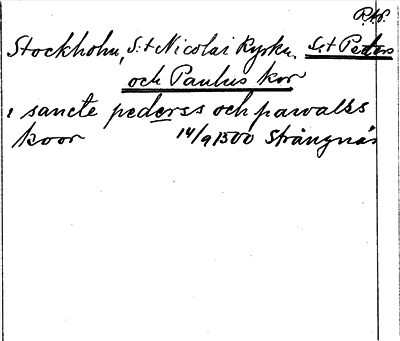 Stockholm, S:t Nicolai Kyrka. S:t Peders
och Paulus kor
i sancte pederss och pawalss
koor 14/9 1500 Strängnäs